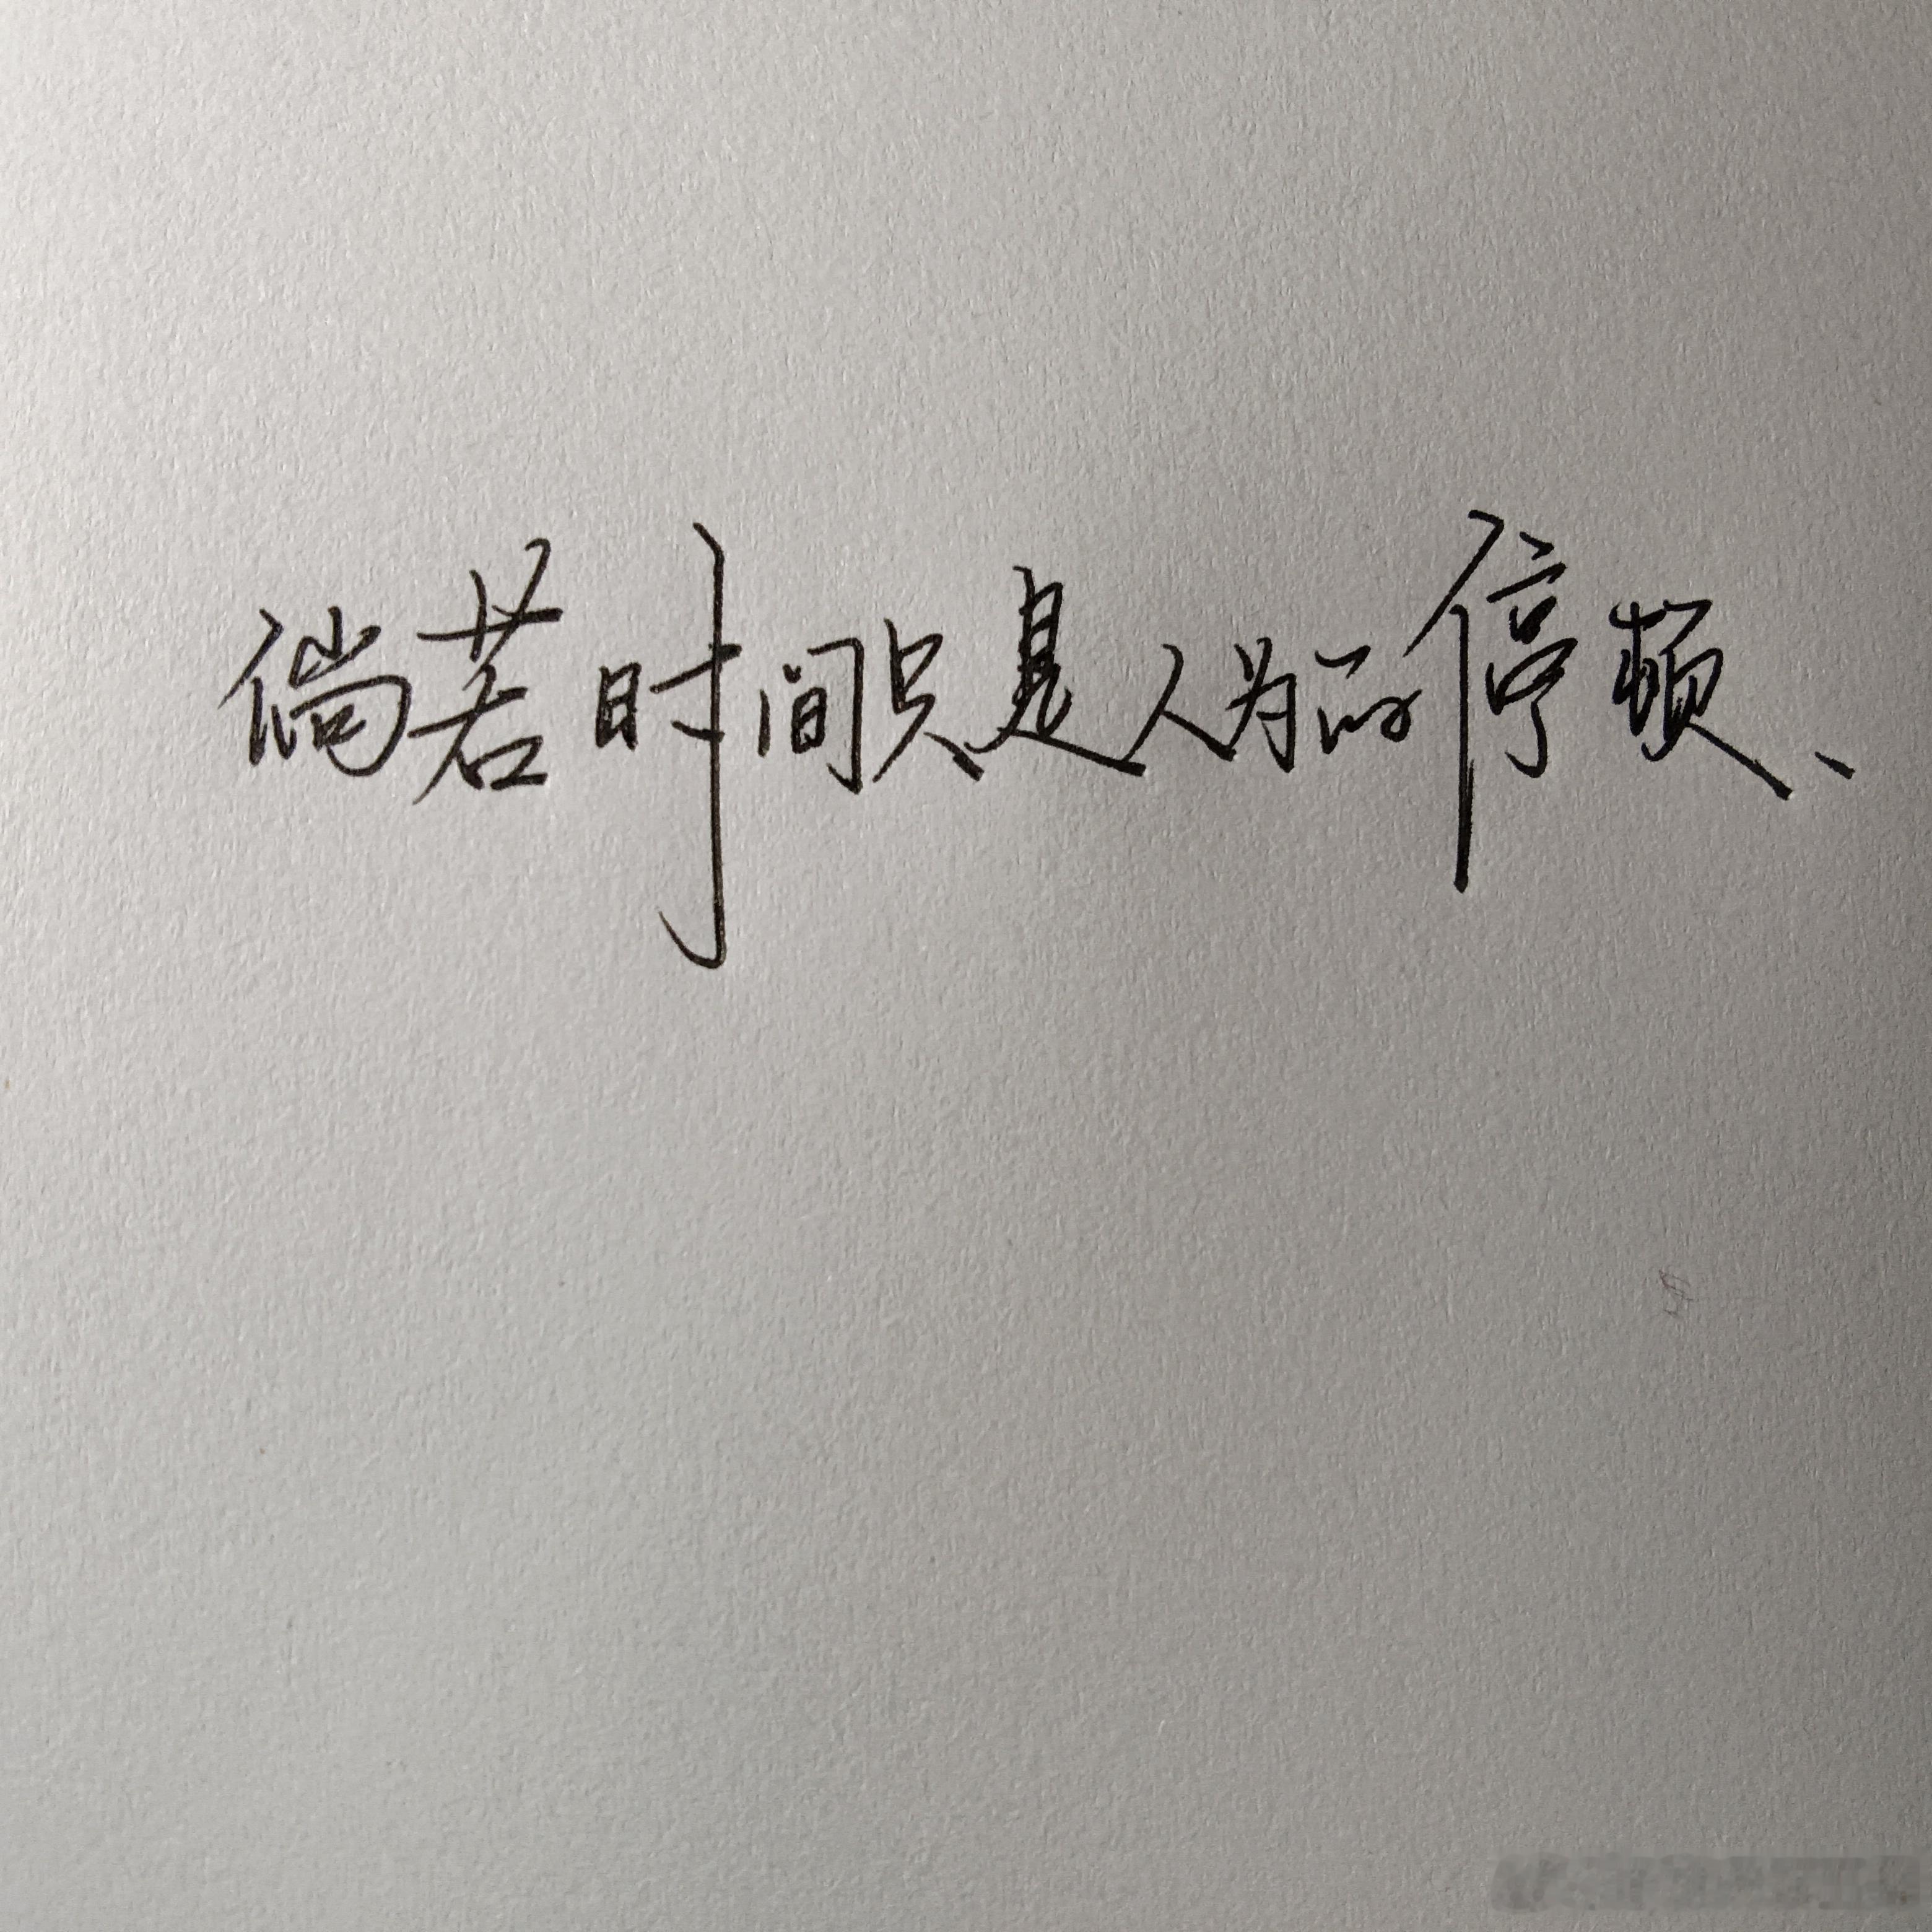 倘若时间只是人为的停顿、